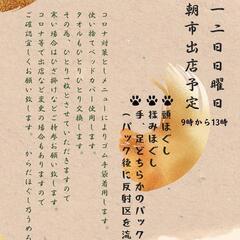 一二日日曜日
朝市出店予定
9時から13時
頭ほぐし
揉みほぐし
手、足どちらかのパック
(パック後に反射区を流
コロナ対策としメニューによりゴム手袋着用します。
使い捨てベッドのパー使用します。
タオルもひとりひとり交換します。
その為、ひとり一枚とさせていただきますので
寒い場合はひざ掛けなどご持参お願いします。
コロナ等で出店など変更の場合もありますので
ご確認宜しくお願い致します。からだほぐし乃うめん